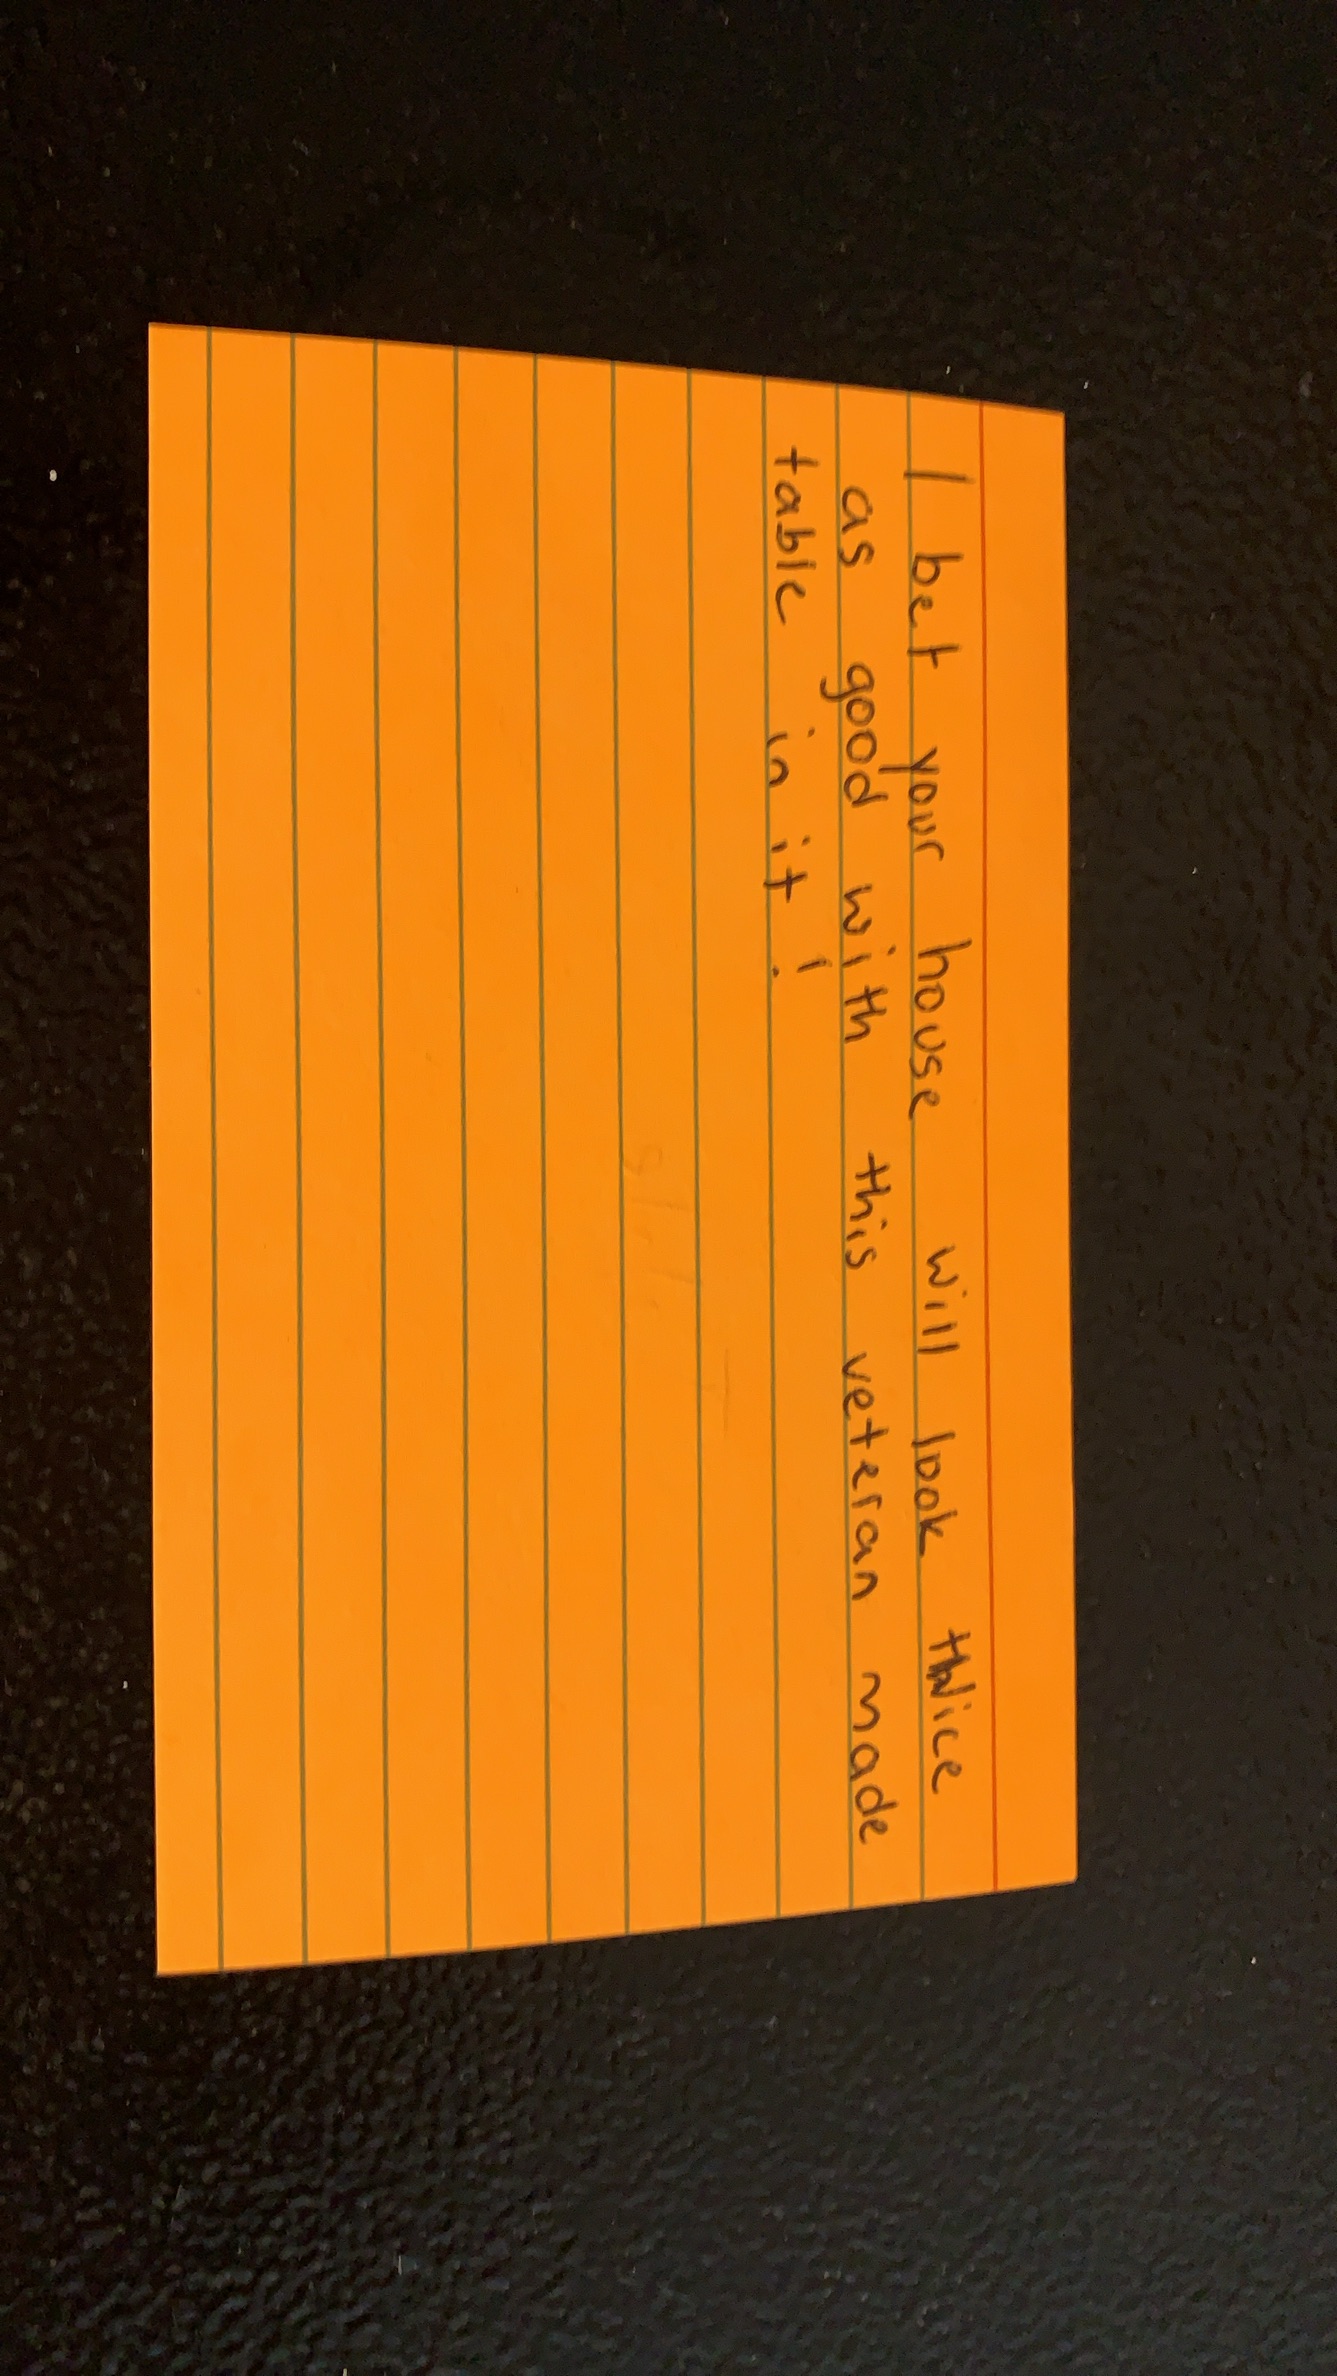 I bet your house will look twice
as good with this veteran made
table in it!